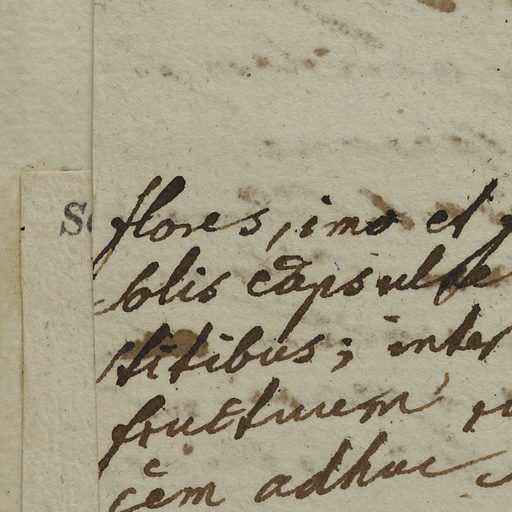 flores, imo et
blis capsulae
stitibus; inter
fructuum
cem adhuc